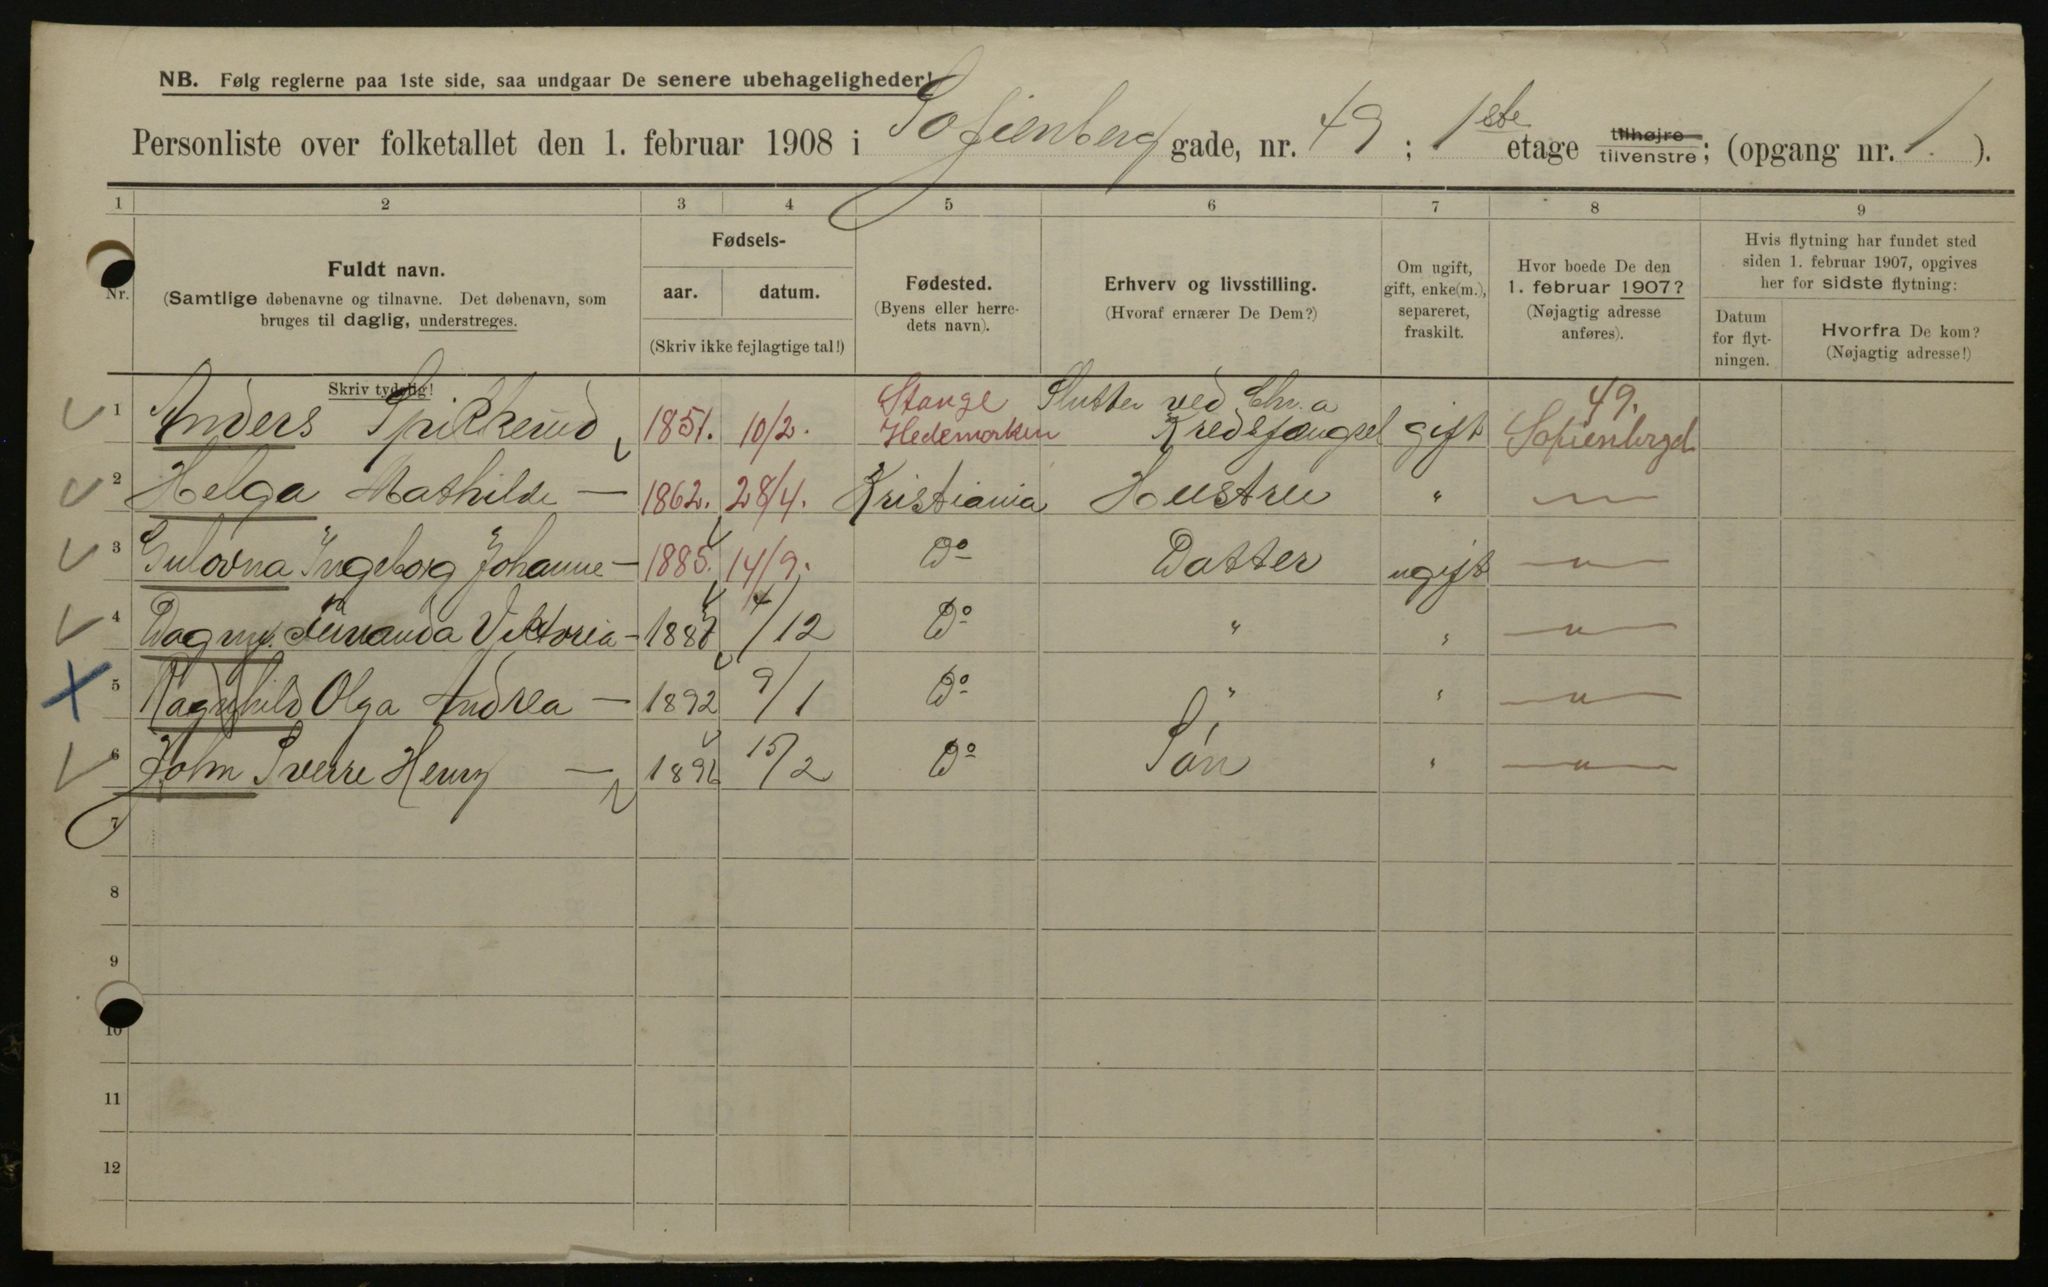 NB. Følg reglerne paa 1ste side, saa undgaar De senere ubehageligheder!
Personliste over folketallet den 1. februar 1908 i Sofienberg gade, nr. 49 ; 1ste etage tilhøjre tilvenstre; (opgang nr. 1. ).
1 2 3 4 5 6 7 8 9
Nr.
Fuldt navn.
(Samtlige døbenavne og tilnavne. Det døbenavn, som
bruges til daglig, understreges.
Skriv tydelig!
Fødsels-
aar. datum.
(Skriv ikke fejlagtige tal!)
Fødested.
(Byens eller herre-
dets navn).
Erhverv og livsstilling.
(Hvoraf ernærer De Dem?)
Om ugift,
gift, enke(m.),
separeret,
fraskilt.
Hvor boede De den
1. februar 1907?
(Nøjagtig adresse
anføres).
Hvis flytning har fundet sted
siden 1. februar 1907, opgives
her for sidste flytning:
Datum
for flyt-
ningen.
Hvorfra De kom?
(Nøjagtig adresse!)
Stange Slutter ved Chr.a 49.
1 Anders Spikkerud 1851. 10/2. Hedemarken Kredsfængsel gift Sofienbergd
2 Helga Mathilde — 1862. 28/4. Kristiania Hustru " — " —
3 Gulovna Ingeborg Johanne — 1885. 14/9. Do Datter ugift — " —
4 Dagny Viktoria — 1887 4/12 Do " " — " —
5 Ragnhild Olga Andrea — 1892 9/1 Do " " — " —
6 John Sverre Henry — 1896 15/2 Do Søn " — " —
7
8
9
10
11
12